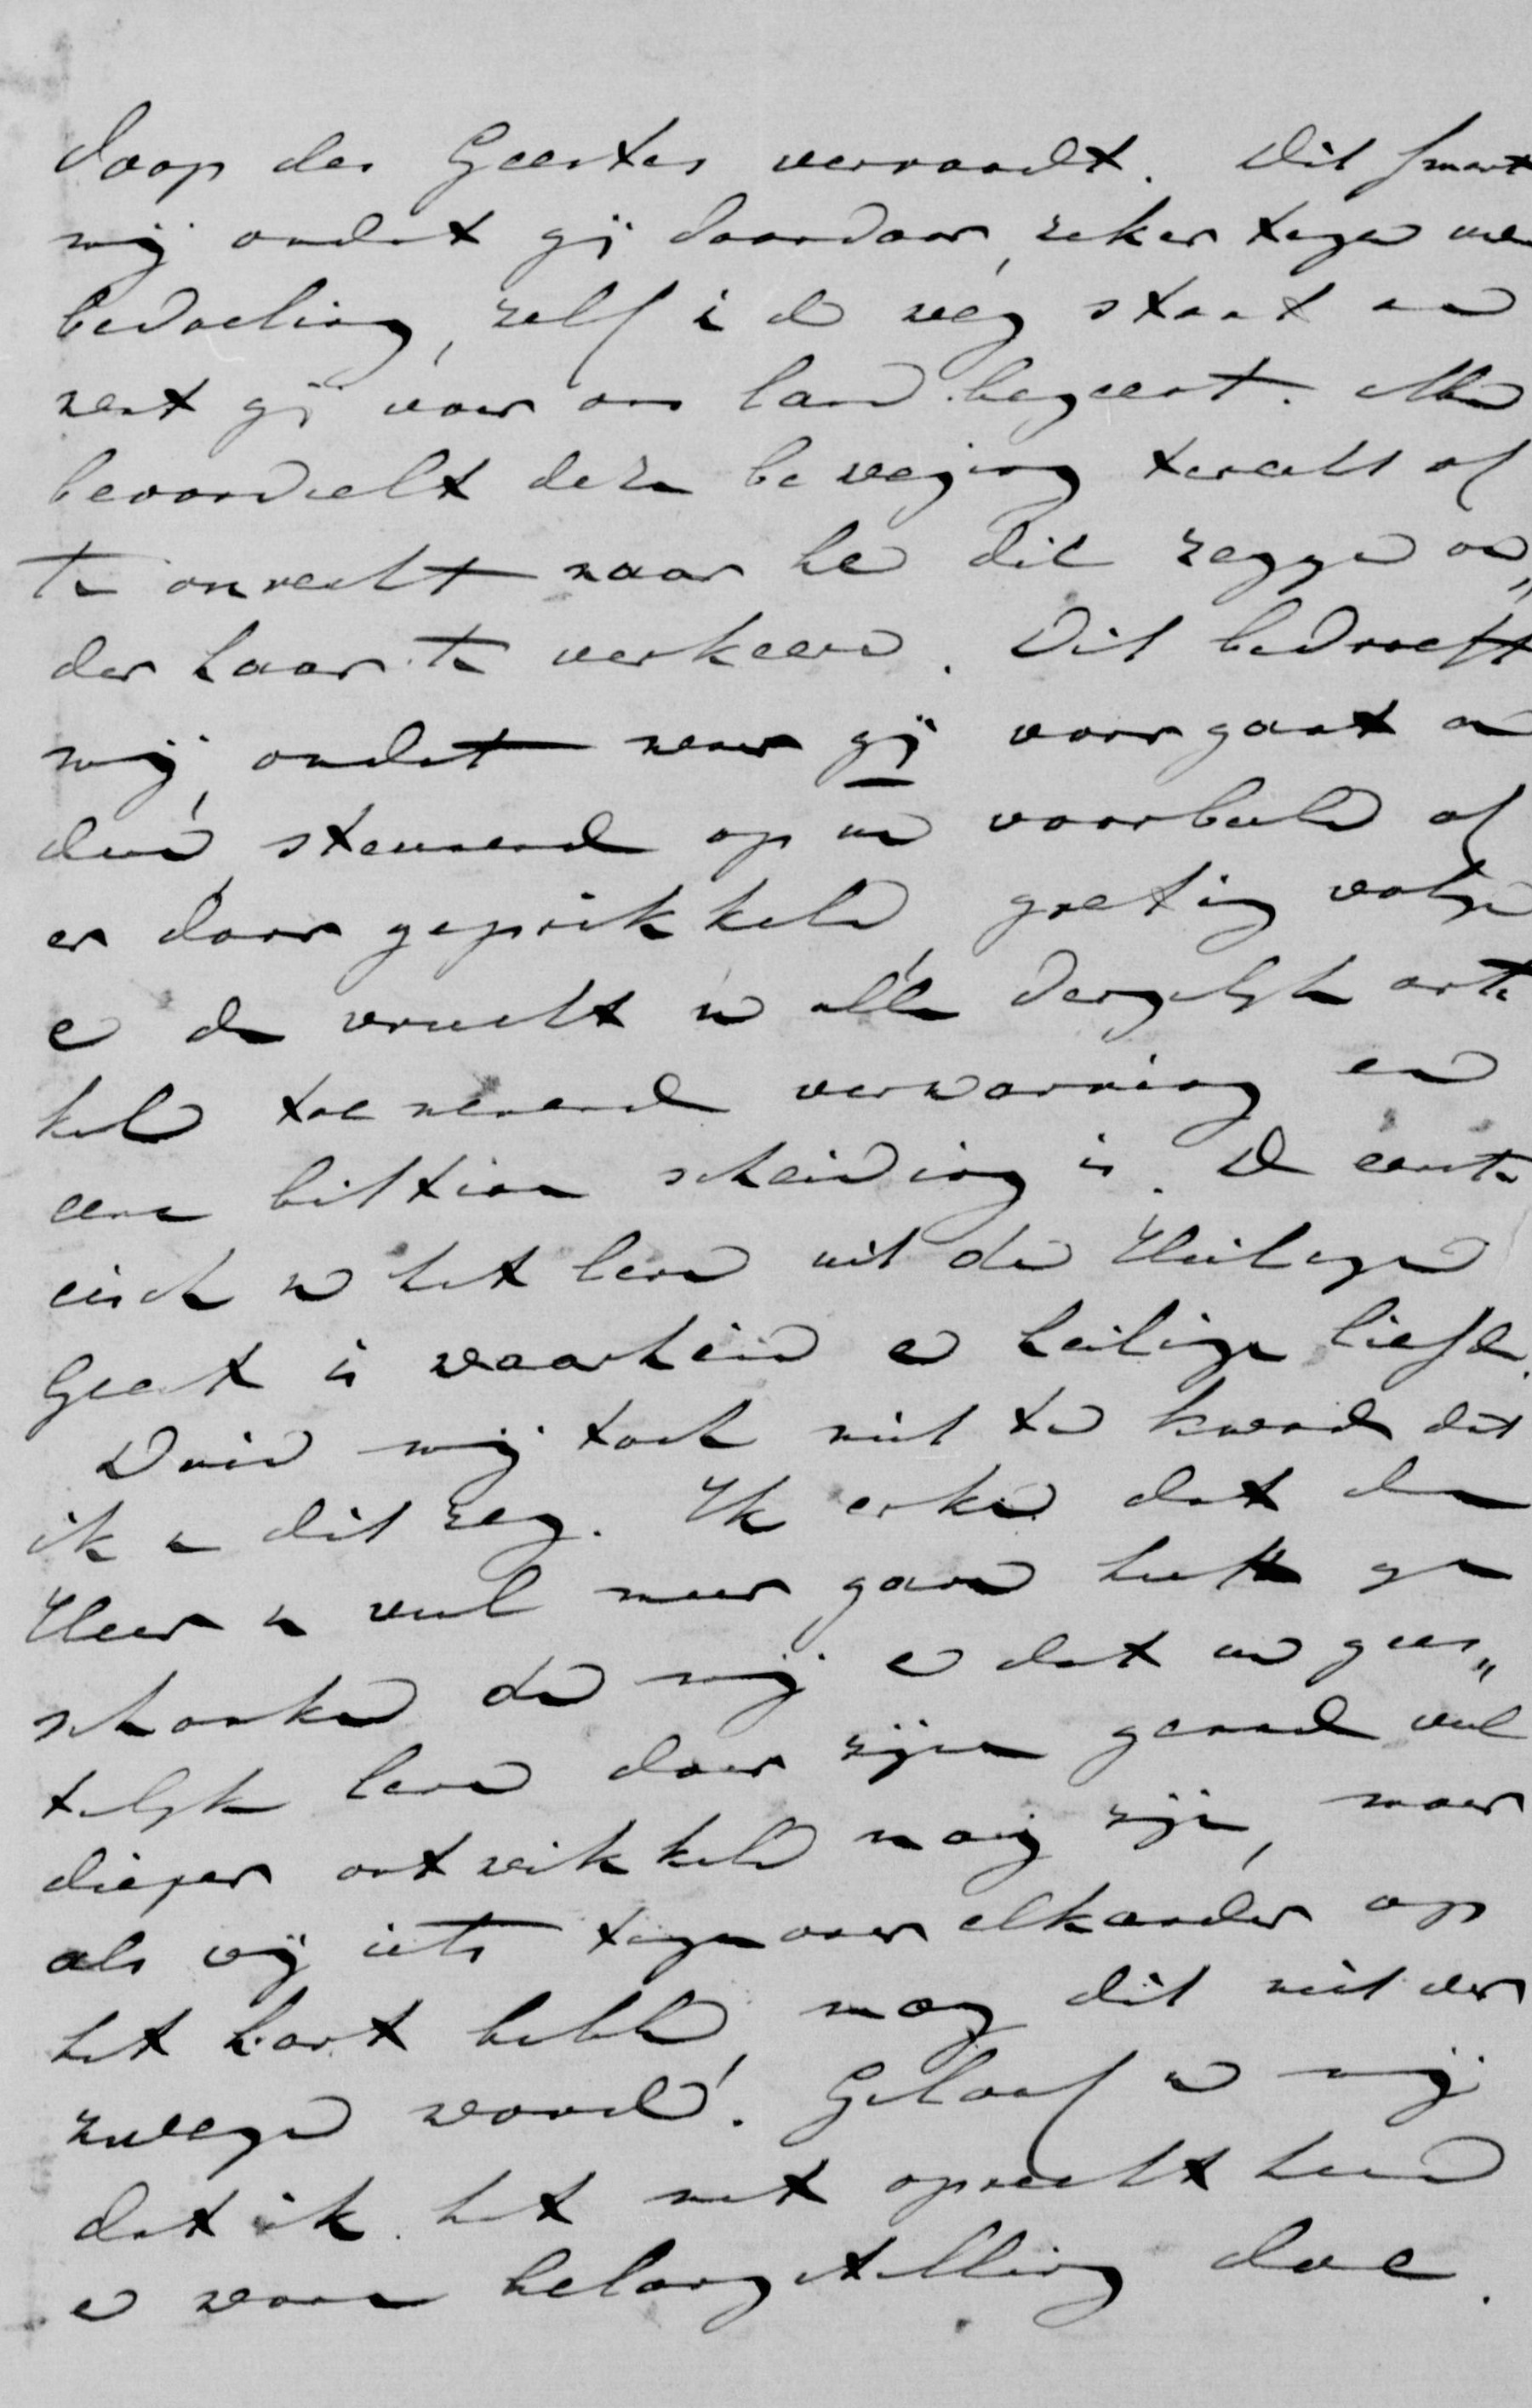 doop des Geestes verraadt. Dit smart
mij omdat gij daardoor, zeker tegen uw
bedoeling, zelf in den weg staat aan
wat gij voor ons land begeert. Men
beoordeelt deze beweging terecht of
te onrecht naar hen die zeggen on„
der haar te verkeeren. Dit bedroeft
mij, omdat waar gij voorgaat an
deren, steunend op uw voorbeeld of
er door geprikkeld, gretig volgen
en de vrucht van alle dergelijke arti
kelen toenemende verwarring en
eene bittere scheiding is. De eerste
eisch van het leven uit den Heiligen
Geest is waarheid en heilige liefde.
Duid mij toch niet ten kwade dat
ik u dit zeg. Ik erken dat de
Heer u veel meer gaven heeft ge
schonken dan mij en dat uw gees„
telijk leven door zijne genade veel
dieper ontwikkeld mag zijn, maar
als wij iets tegenover elkander op
het hart hebben, mag dit niet ver
zwegen worden. Geloof van mij
dat ik het met oprechtheid
en ware belangstelling doe.